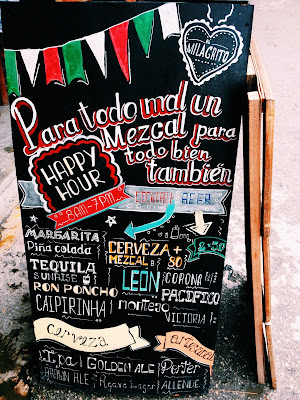 MILAGRITO
Para todo mal un
Mezcal para
todo bien
también
HAPPY
HOUR
8AM-7PM
MARGARITA
Piña colada
TEQUILA
SUNRISE
RON PONCHO
CAIPIRINHA
CERVEZA +
MEZCAL
80
LEÓN
montejo
CORONA
PACIFICO
VICTORIA
cerveza
artesanal
Ipa GOLDEN ALE Porter
BROWN ALE Agave Lager ALLENDE